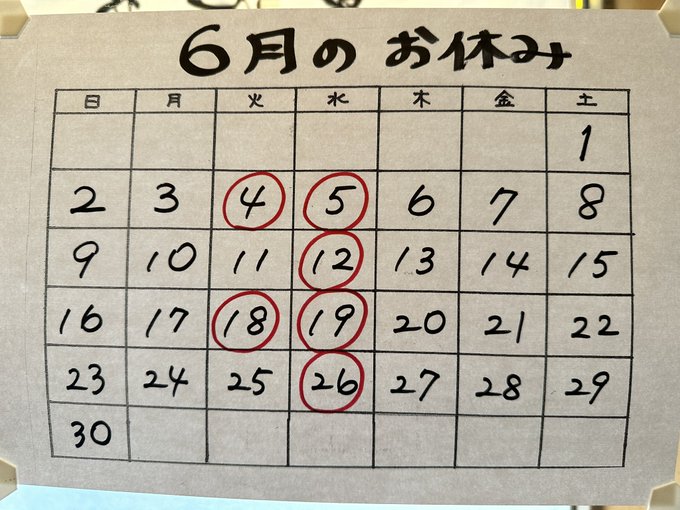 6月のお休み
日 月 火 水 木 金 土
1
2 3 4 5 6 7 8
9 10 11 12 13 14 15
16 17 18 19 20 21 22
23 24 25 26 27 28 29
30